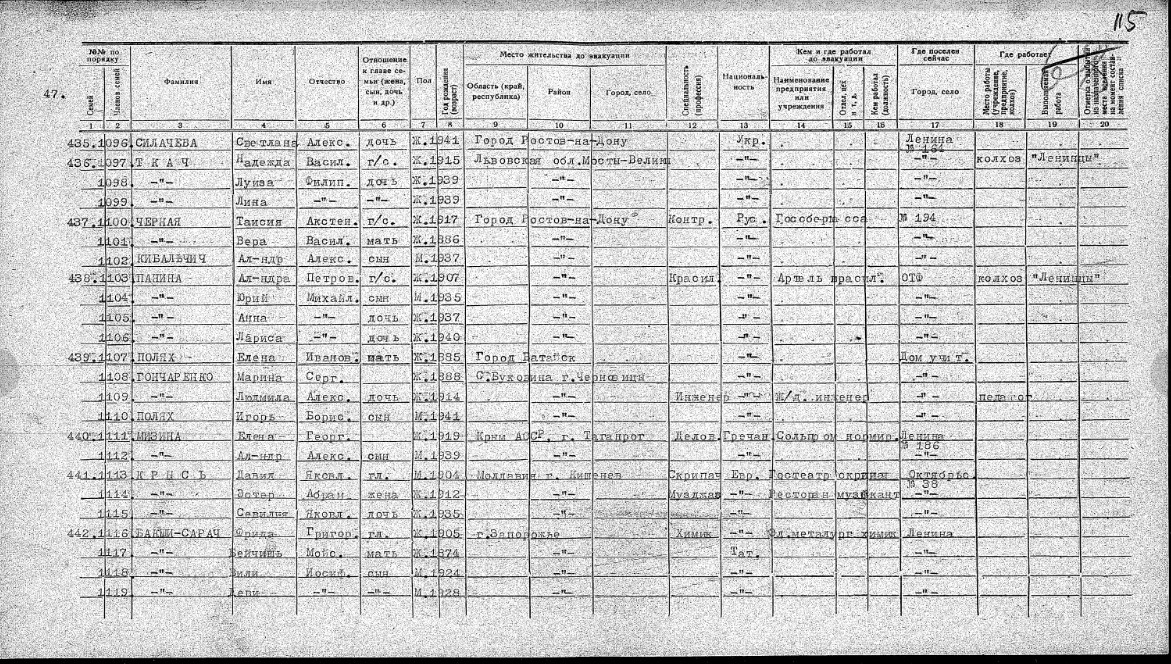 115
47.
№№ по порядку Фамилия Имя Отчество Отношение к главе семьи (жена, сын, дочь и др.) Пол Год рождения (возраст) Место жительства до эвакуации Специальность (профессия) Национальность Кем и где работал до эвакуации Где поселен сейчас Где работает
Семей Членов семей Область (край, республика) Район Город, село Наименование предприятия или учреждения Отдел, цех и т. д. Кем работал (должность) Город, село Место работы (учреждение, предприятие, колхоз) Выполняемая работа
1 2 3 4 5 6 7 8 9 10 11 12 13 14 15 16 17 18 19 20
435. 1096. СИЛАЧЕВА Светлана Алекс. дочь Ж. 1941 Город Ростов-на-Дону Укр. Ленина № 161
436. 1097. Т К А Ч Надежда Васил. г/с. Ж. 1915 Львовская обл. Мосты-Велики -"- -"- колхоз "Ленинцы"
1098. -"- Луиза Филип. дочь Ж. 1939 -"- -"- -"-
1099. -"- Лина -"- -"- Ж. 1939 -"- -"- -"-
437. 1100. ЧЕРНАЯ Таисия Акстен. г/с. Ж. 1917 Город Ростов-на-Дону Контр. Рус. № 194
1101. -"- Вера Васил. мать Ж. 1886 -"- -"- -"-
1102. КИБАЛЬЧИЧ Ал-ндр Алекс. сын М. 1937 -"- -"- -"-
438. 1103. ПАНИНА Ал-ндра Петров. г/с. Ж. 1907 -"- Красил. -"- Артель красил. ОТФ колхоз "Ленинцы"
1104. -"- Юрий Михайл. сын М. 1935 -"- -"- -"-
1105. -"- Анна -"- дочь Ж. 1937 -"- -"- -"-
1106. -"- Лариса -"- дочь Ж. 1940 -"- -"- -"-
439. 1107. ПОЛЯХ Елена Иванов. мать Ж. 1885 Город Батайск -"- Дом учит.
1108. ГОНЧАРЕНКО Марина Серг. Ж. 1888 С. Буковина г. Черновицы -"- -"-
1109. -"- Людмила Алекс. дочь Ж. 1914 -"- Инженер -"- Ж/д. инженер -"- педагог
1110. ПОЛЯХ Игорь Борис. сын М. 1941 -"- -"- -"-
440. 1111. МИЗИНА Елена Георг. Ж. 1919 Крым АССР. г. Таганрог Делов. Гречан. нормир. Ленина № 186
1112. -"- Ал-ндр Алекс. сын М. 1939 -"- -"- -"-
441. 1113. К Р Н С Ь Давид Яковл. гл. М. 1904 Молдавия г. Кишенев Скрипач Евр. Гостеатр скрипач Октябрьс № 38
1114. -"- Эстер Абрам жена Ж. 1912 -"- -"- Ресторан музыкант -"-
1115. -"- Яковл. дочь Ж. 1935 -"- -"- -"-
442. 1116. БАКШИ-САРАЧ Фрида Григор. гл. Ж. 1905 г. Запорожье Химик -"- металург химик Ленина
1117. -"- Мойс. мать Ж. 1874 -"- Тат. -"-
1118. -"- Вили Иосиф. сын М. 1924 -"- -"- -"-
1119. -"- Леви -"- -"- М. 1928 -"- -"- -"-